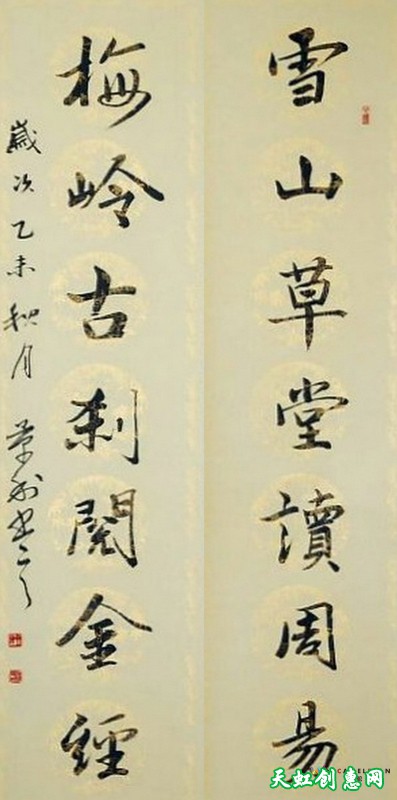 雪山草堂讀周易
梅岭古刹閱金經
歲次乙未秋月
天虹创惠网